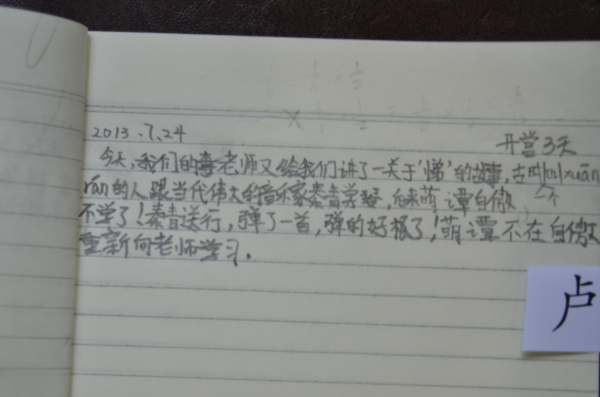 2013.7.24
开营3天
今天,我们的老师又给我们讲了一关于'悌'的故事,古时
的人跟当代伟大的音乐家秦青学琴,后来萌谭自傲,一个
不学了!秦青送行,弹了一首,弹的好极了!萌谭不在自傲又
重新向老师学习。
卢